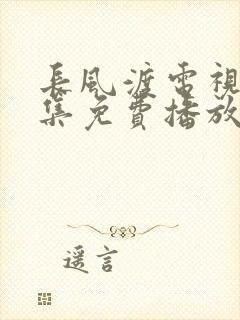 長風渡電視
集免費播放
遥言